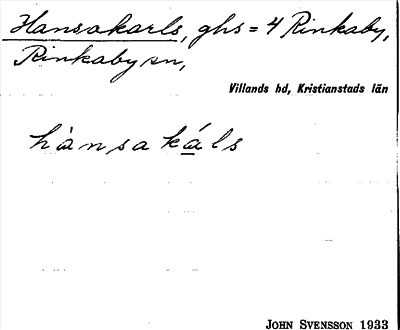 Hansakarls, ghs = 4 Rinkaby,
Rinkaby sn,
Villands hd, Kristianstads län
hànsakáls
JOHN SVENSSON 1933